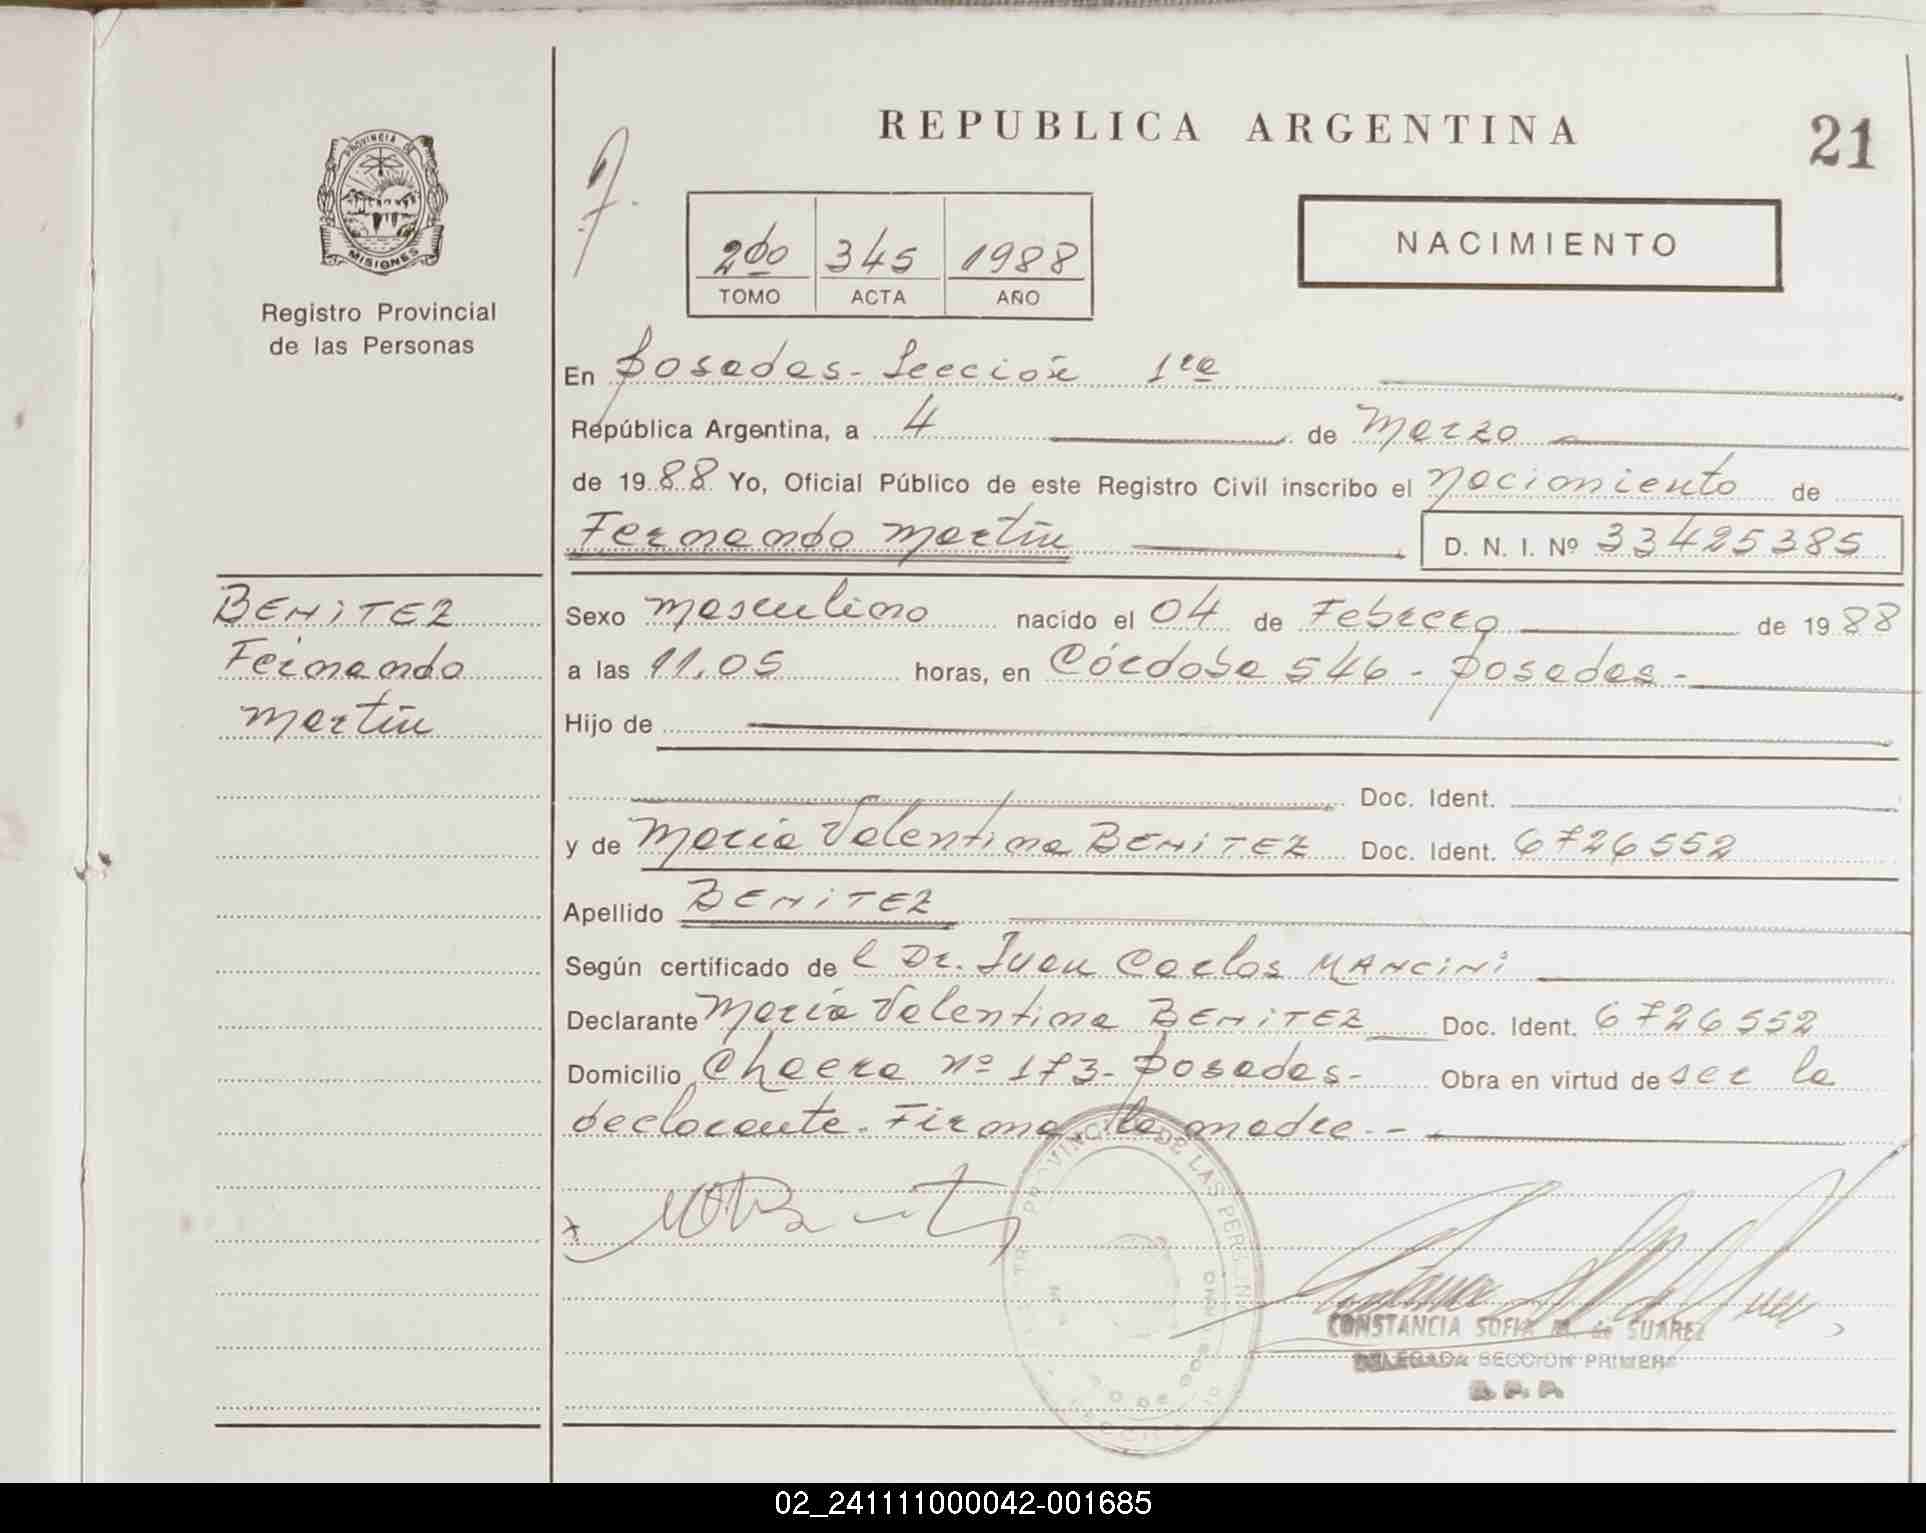 REPUBLICA ARGENTINA
21
PROVINCIA DE
MISIONES
Registro Provincial
de las Personas
2do 345 1988
TOMO ACTA AÑO
NACIMIENTO
En Posadas - Sección 1ra
República Argentina, a 4 de Marzo
de 1988 Yo, Oficial Público de este Registro Civil inscribo el Nacimiento de
Fernando Martín D. N. I. Nº 33425385
BENITEZ
Fernando
Martín
Sexo Masculino nacido el 04 de Febrero de 1988
a las 11,05 horas, en Córdoba 546 - Posadas -
Hijo de
Doc. Ident.
y de María Valentina BENITEZ Doc. Ident. 6726552
Apellido BENITEZ
Según certificado del Dr. Juan Carlos MANCINI
Declarante María Valentina BENITEZ Doc. Ident. 6726552
Domicilio Chacra nº 173 - Posadas - Obra en virtud de ser la
declarante. Firma la madre. -
CONSTANCIA SOFIA M. de SUAREZ
DELEGADA SECCION PRIMERA
R. P. P.
02_241111000042-001685